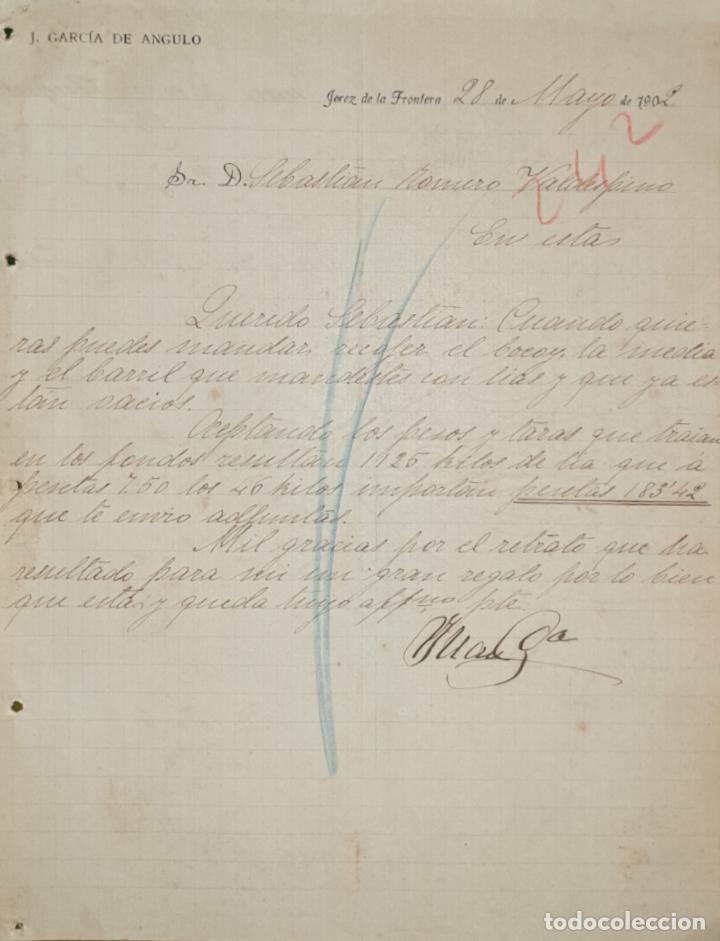 J. GARCÍA DE ANGULO
Jerez de la Frontera 28 de Mayo de 1902
242
Sr. D. Sebastián Romero Valdespino
En esta
Querido Sebastian: Cuando quie-
ras puedes mandar recojer el bocoy, la media
y el barril que mandastes con lias y que ya es-
tan vacios.
Aceptando los pesos y taras que traian
en los fondos resultan 1125 kilos de lia que á
pesetas 7.50 los 46 kilos importan pesetas 183'42
que te envio adjuntas.
Mil gracias por el retrato que ha
resultado para mi un gran regalo por lo bien
que está y queda tuyo affmo pte.
todocoleccion